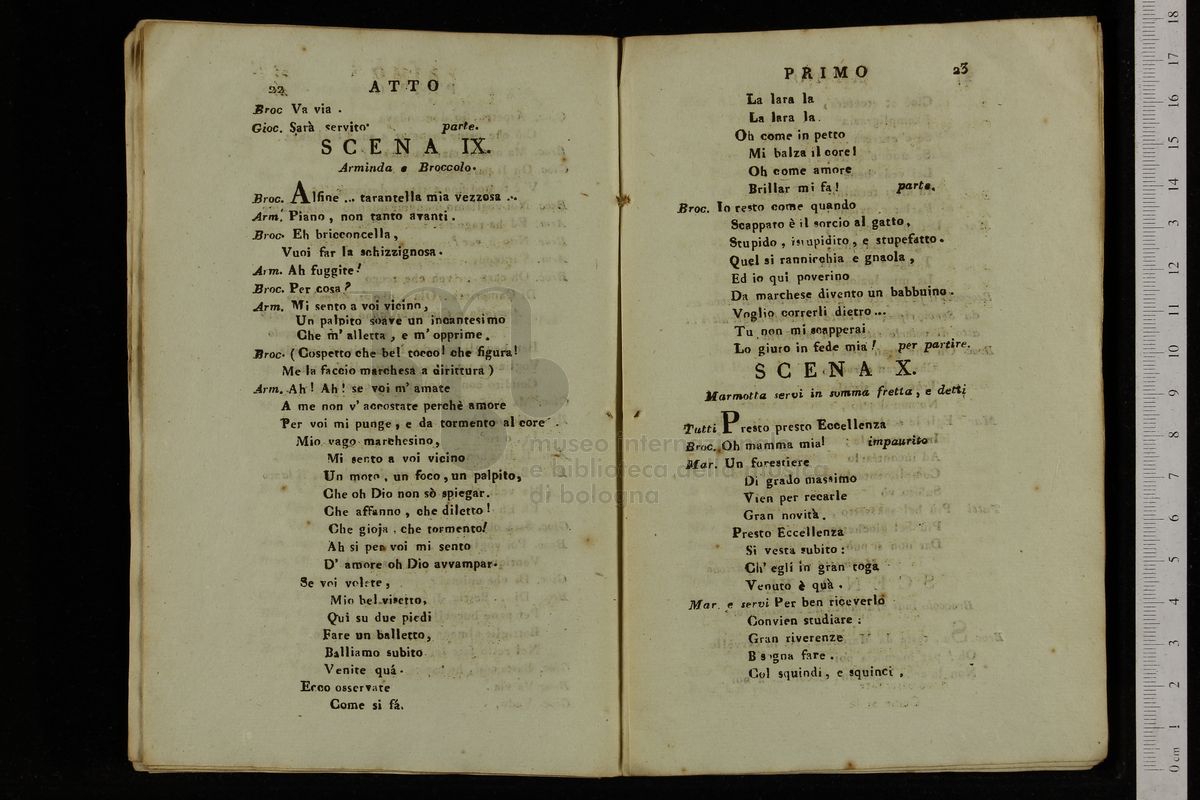 22
ATTO
Broc Va via .
Gioc. Sarà servito. parte.
SCENA IX.
Arminda e Broccolo.
Broc. Alfine ... tarantella mia vezzosa ...
Arm. Piano , non tanto avanti .
Broc. Eh bricconcella ,
Vuoi far la schizzignosa .
Arm. Ah fuggite !
Broc. Per cosa ?
Arm. Mi sento a voi vicino ,
Un palpito soave un incantesimo
Che m' alletta , e m' opprime .
Broc. ( Cospetto che bel tocco ! che figura !
Me la faccio marchesa a dirittura )
Arm. Ah ! Ah ! se voi m' amate
A me non v' accostate perchè amore
Per voi mi punge , e da tormento al core .
Mio vago marchesino,
Mi sento a voi vicino
Un moto , un foco , un palpito,
Che oh Dio non sò spiegar.
Che affanno , che diletto !
Che gioja , che tormento!
Ah si per voi mi sento
D' amore oh Dio avvampar.
Se voi volete ,
Mio bel visetto,
Qui su due piedi
Fare un balletto,
Balliamo subito
Venite quá .
Ecco osservate
Come si fá.
PRIMO
23
La lara la
La lara la.
Oh come in petto
Mi balza il core!
Oh come amore
Brillar mi fa ! parte.
Broc. Io resto come quando
Scappato è il sorcio al gatto ,
Stupido , istupidito , e stupefatto .
Quel si rannicchia e gnaola ,
Ed io qui poverino
Da marchese divento un babbuino .
Voglio correrli dietro ...
Tu non mi scapperai
Lo giuro in fede mia ! per partire.
SCENA X.
Marmotta servi in somma fretta , e detti
Tutti Presto presto Eccellenza
Broc. Oh mamma mia! impaurito
Mar. Un forestiere
Di grado massimo
Vien per recarle
Gran novità .
Presto Eccellenza
Si vesta subito :
Ch' egli in gran toga
Venuto è quà .
Mar. e servi Per ben riceverlo
Convien studiare :
Gran riverenze
Bsogna fare .
Col squindi , e squinci ,
museo internazionale
e biblioteca della musica
di bologna
0 cm 1 2 3 4 5 6 7 8 9 10 11 12 13 14 15 16 17 18